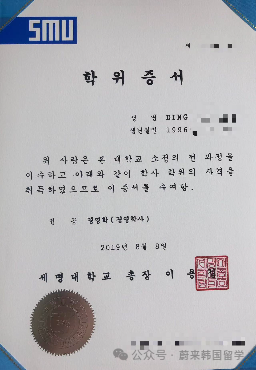 SMU
제
학위증서
성 명 DING
생년월일 1996.
위 사람은 본 대학교 소정의 전 과정을
이수하고 아래와 같이 학사 학위의 자격을
취득하였으므로 이 증서를 수여함.
전 공 경영학(경영학사)
2019년 8월 8일
세명대학교 총장 이용
公众号·蔚来韩国留学